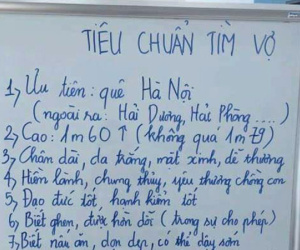 TIÊU CHUẨN TÌM VỢ
1, Ưu tiên: quê Hà Nội
(ngoài ra: Hải Dương, Hải Phòng ....)
2, Cao: 1m60 ↑ (không quá 1m79)
3, Chân dài, da trắng, mắt xinh, dễ thương
4, Hiền lành, chung thủy, yêu thương chồng con
5, Đạo đức tốt, hạnh kiểm tốt
6, Biết ghen, được hờn dỗi (trong sự cho phép)
7, Biết nấu ăn, dọn dẹp, có thể dậy sớm